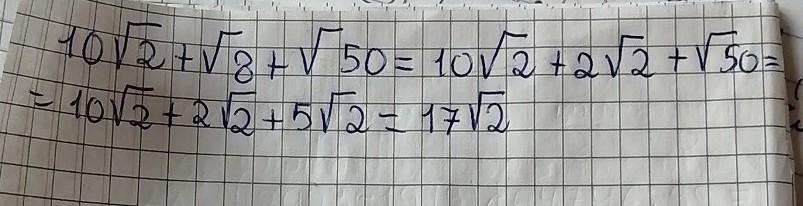 10√2 + √8 + √50 = 10√2 + 2√2 + √50 =
= 10√2 + 2√2 + 5√2 = 17√2